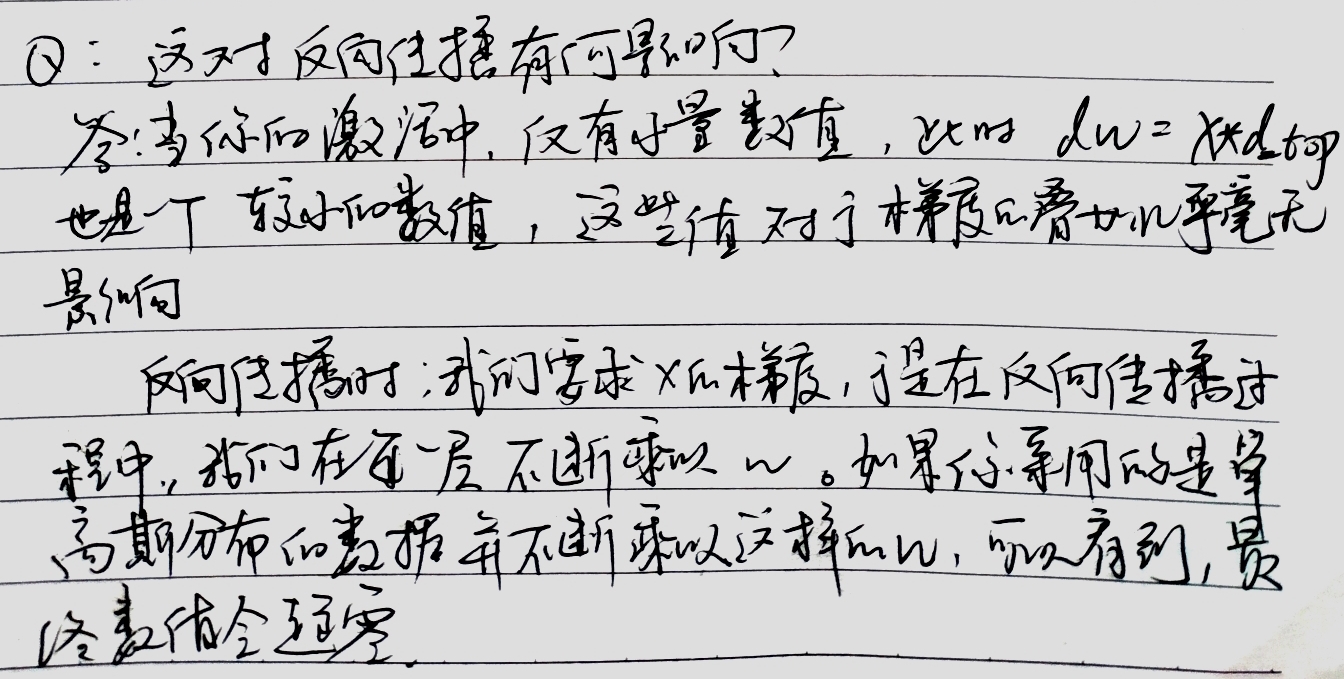 Q：这对反向传播有何影响？
答：当你的激活中，仅有小量数值，此时 dw = x*d_top
也是一个较小的数值，这些值对于梯度的叠加几乎毫无
影响
反向传播时：我们要求x的梯度，于是在反向传播过
程中，我们在每一层不断乘以 w。如果你采用的是单
高斯分布的数据并不断乘以这样的w，可以看到，最
终数值会趋零.